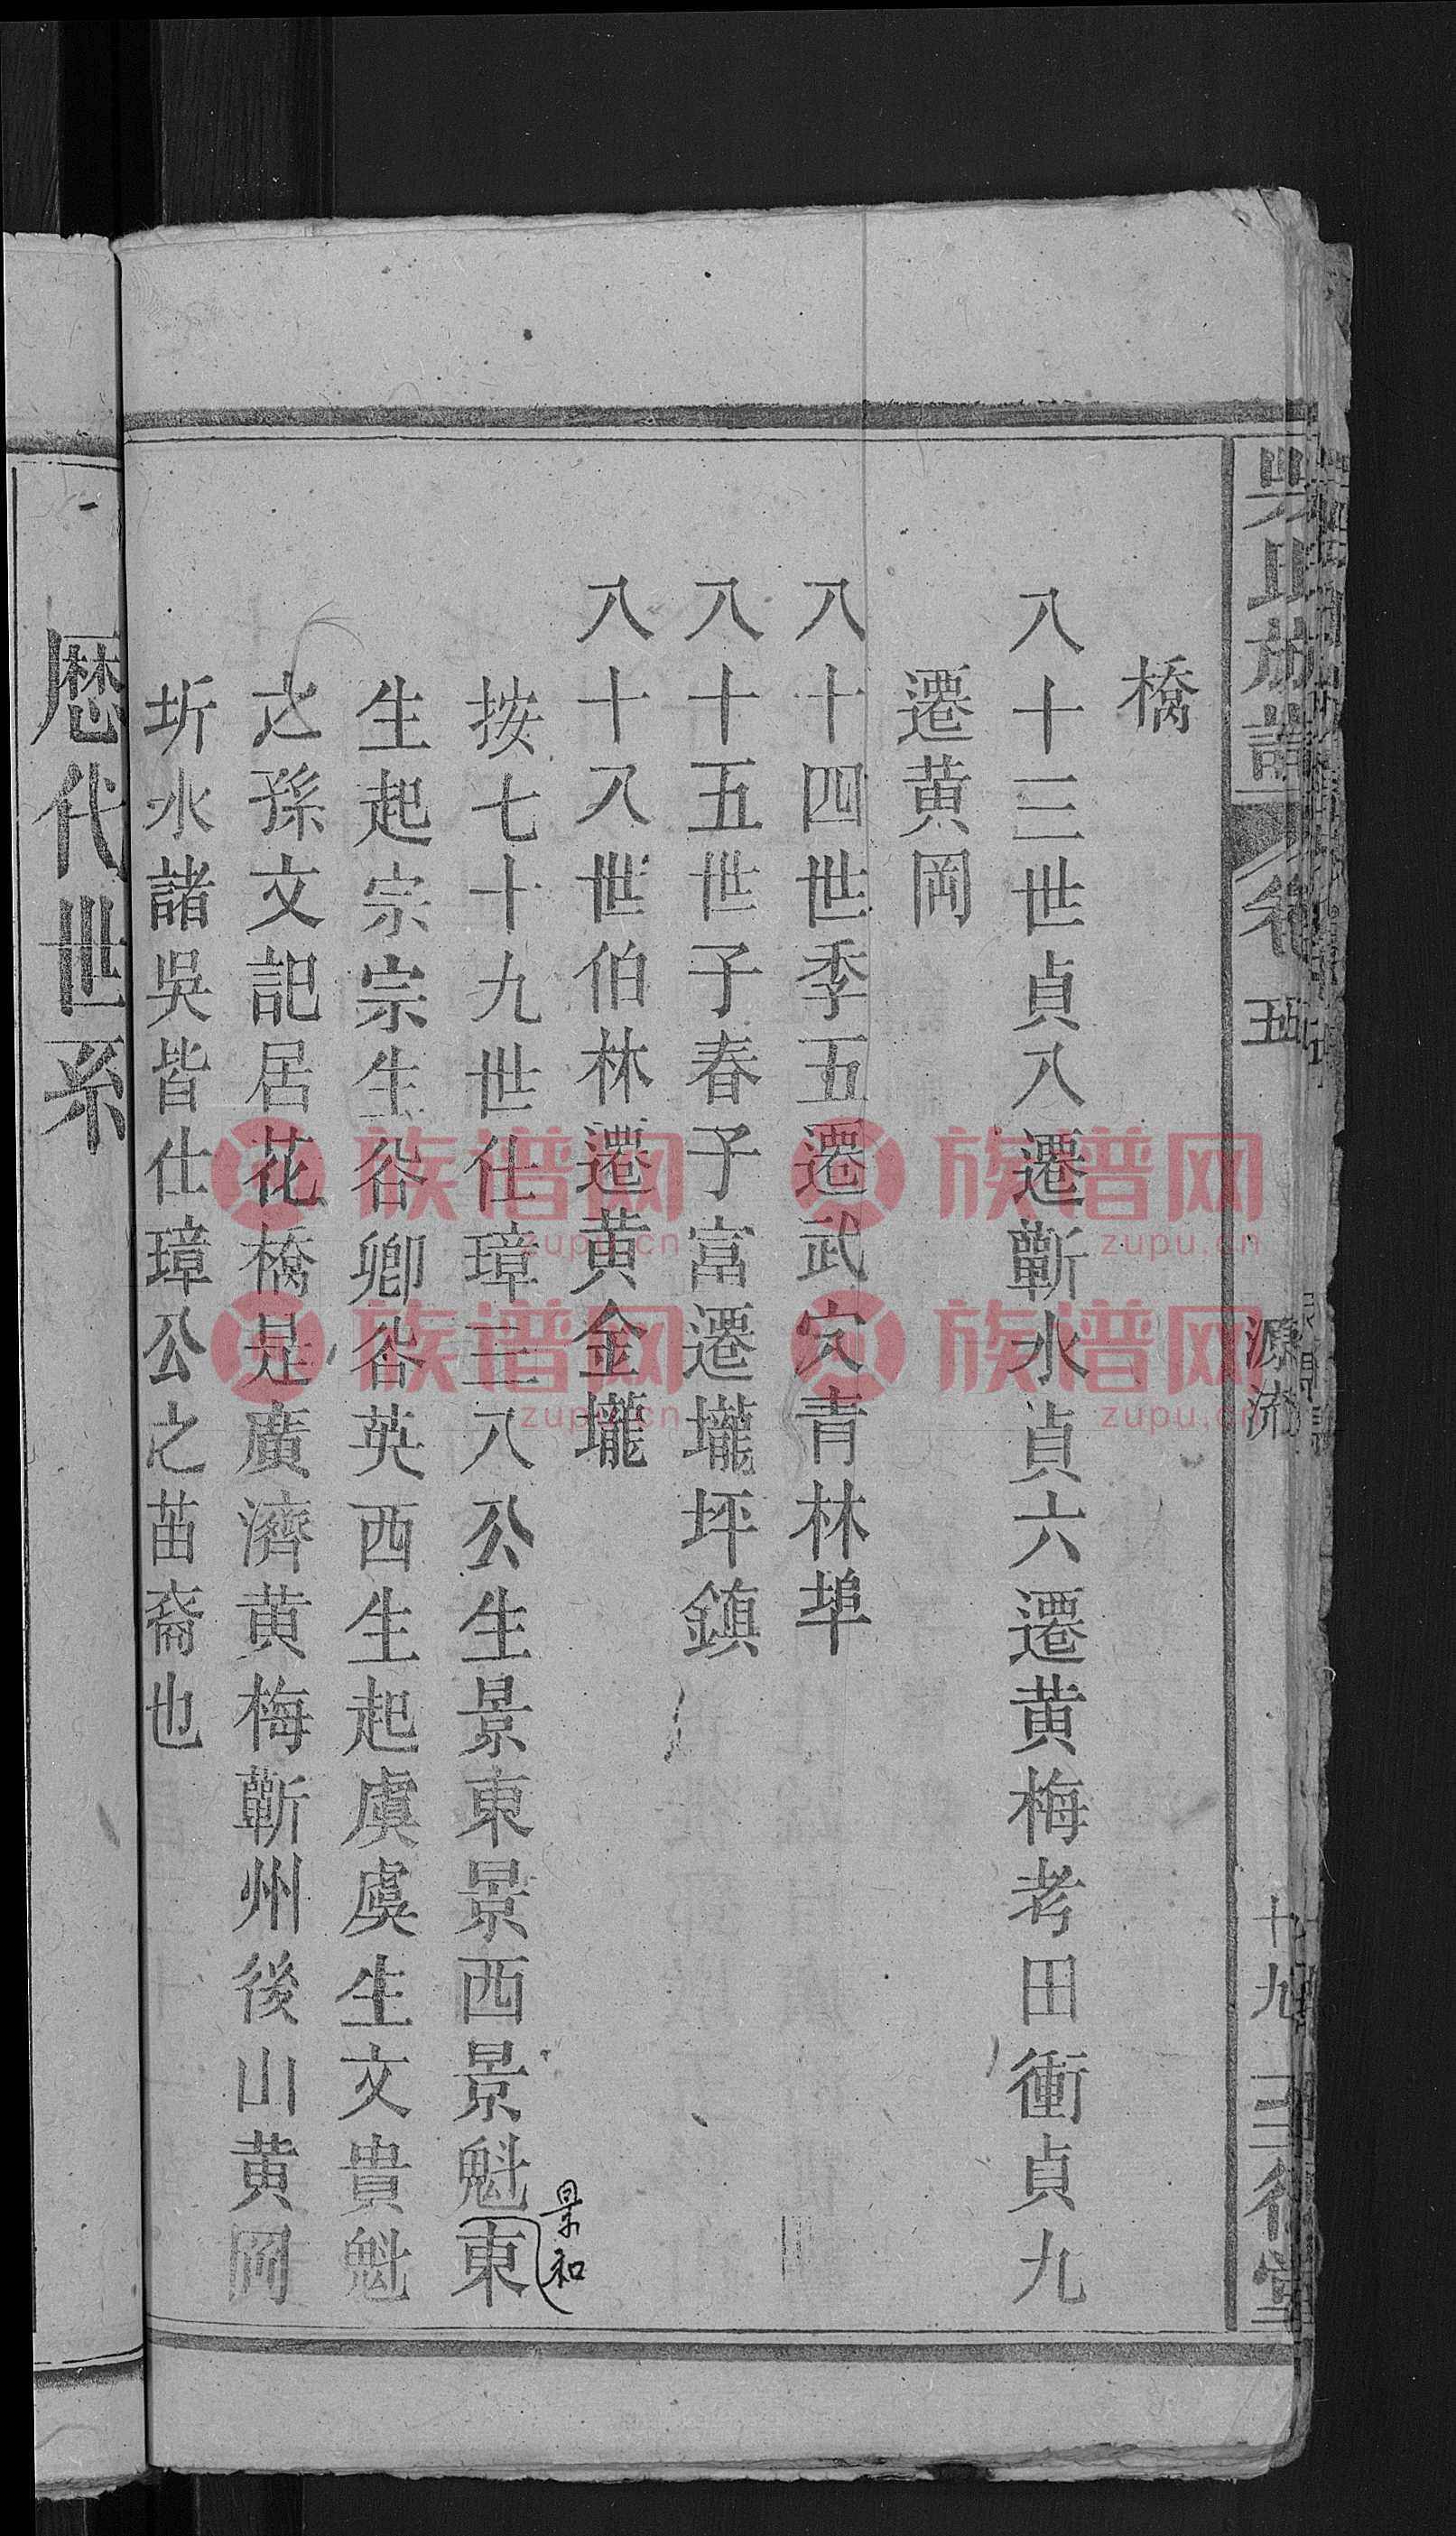 吳氏族譜 卷五 源流 十九 三德堂
橋
八十三世貞八遷蘄水貞六遷黃梅考田衝貞九
遷黃岡
八十四世季五遷武穴青林埠
八十五世子春子富遷壠坪鎮
八十八世伯林遷黃金壠
按七十九世仕璋三八公生景東景西景魁東
景和
生起宗宗生谷卿谷英西生起虞虞生文貴魁
之孫文記居花橋是廣濟黃梅蘄州後山黃岡
圻水諸吳皆仕璋公之苗裔也
歷代世系
族谱网 族谱网
zupu.cn zupu.cn
族谱网 族谱网
zupu.cn zupu.cn